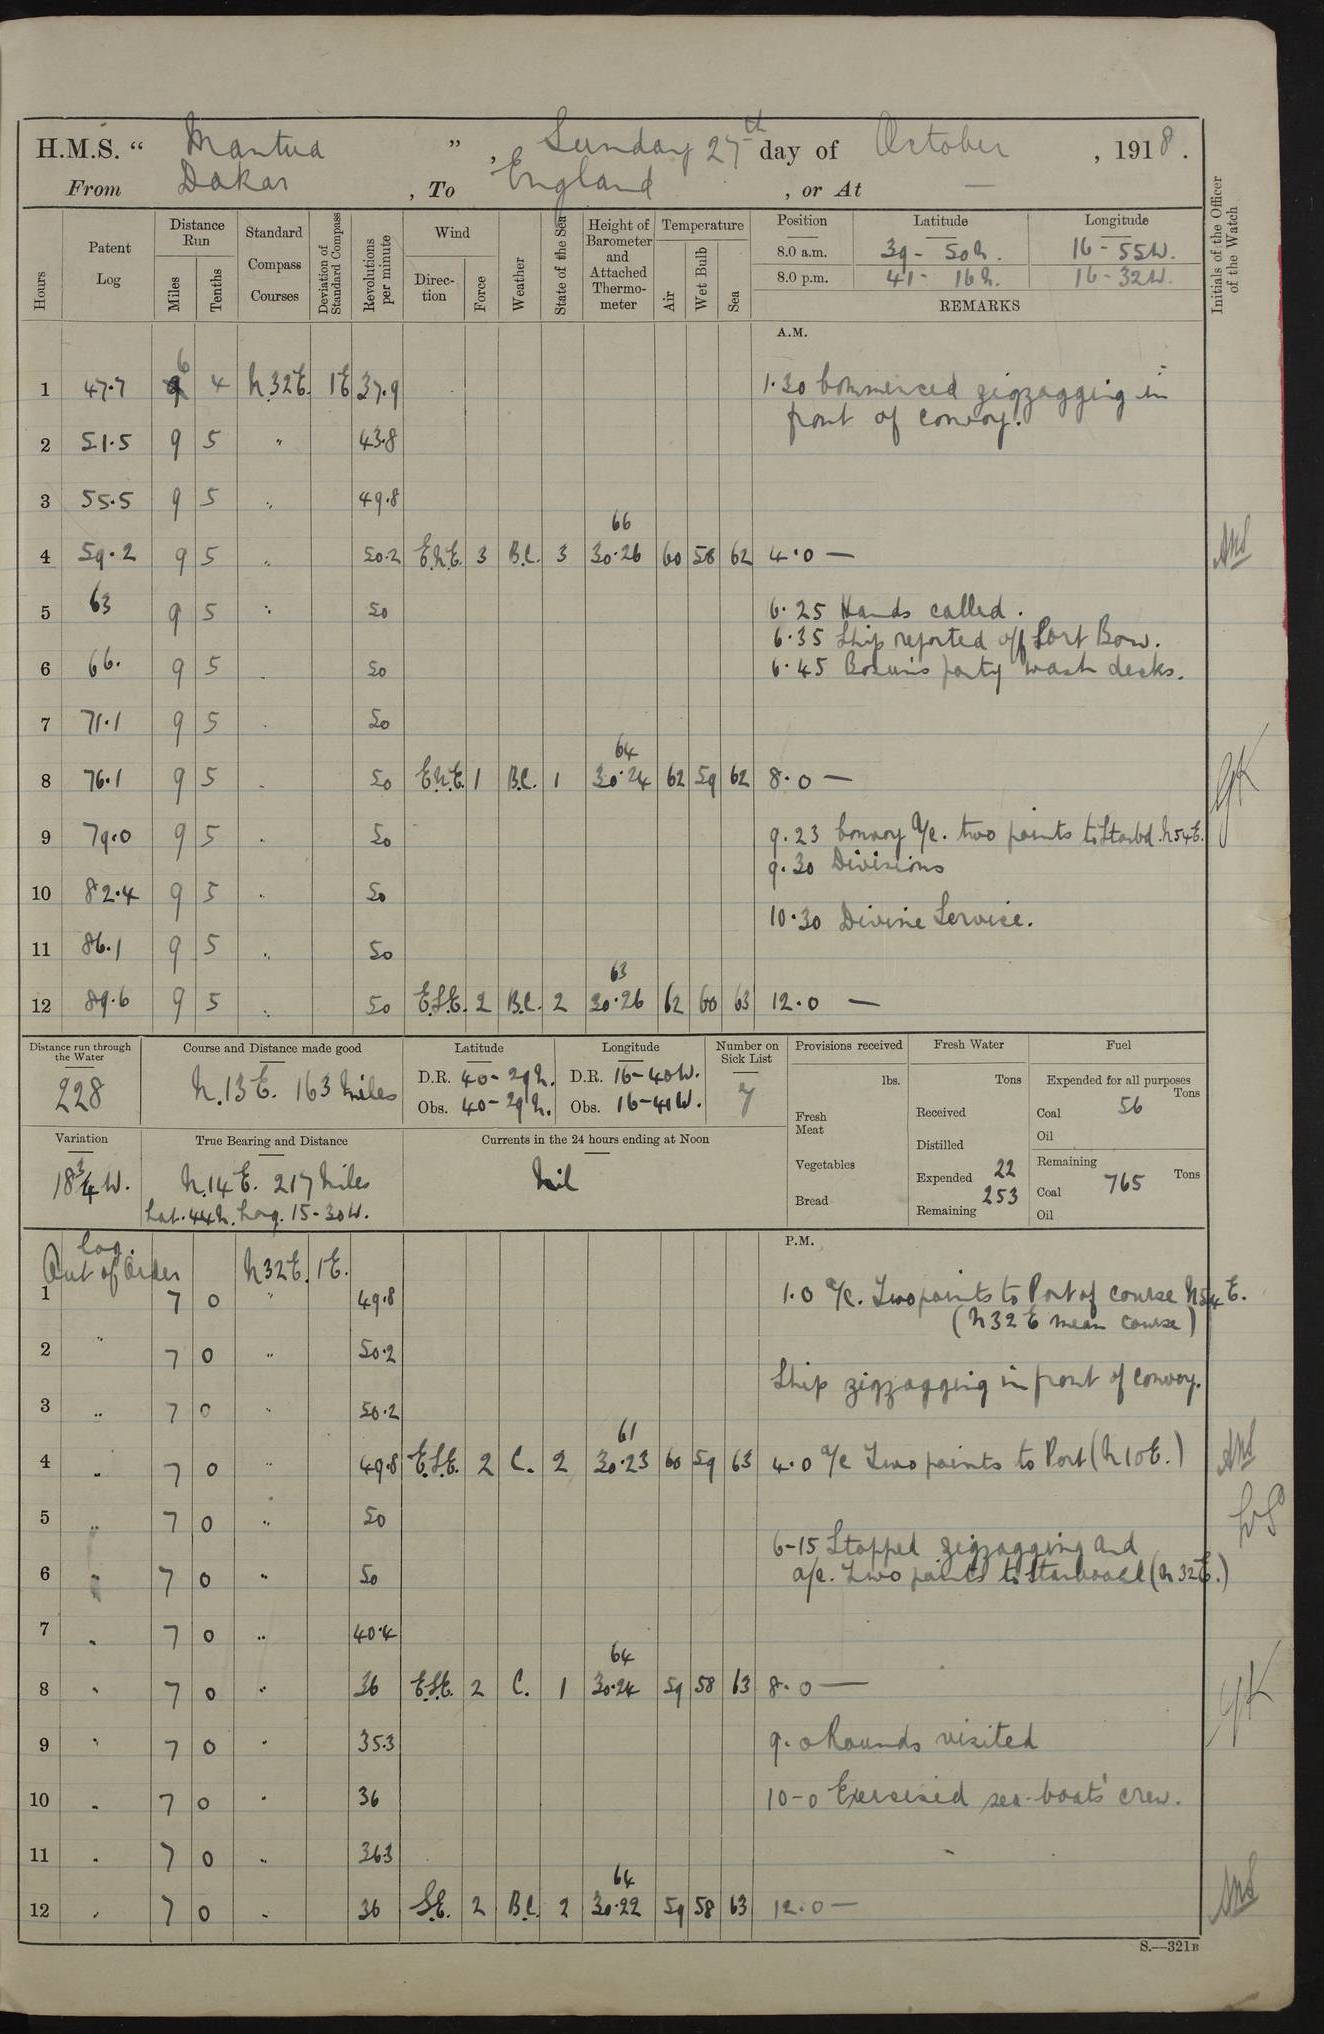 H.M.S. “ Mantua ” , Sunday 27th day of October , 1918.
From Dakar , To England , or At —
Hours
Patent Log
Distance Run
Miles
Tenths
Standard Compass Courses
Deviation of Standard Compass
Revolutions per minute
Wind
Direction
Force
Weather
State of the Sea
Height of Barometer and Attached Thermometer
Temperature
Air
Wet Bulb
Sea
Position Latitude Longitude
8.0 a.m. 39 - 50 N. 16 - 55 W.
8.0 p.m. 41 - 16 N. 16 - 32 W.
REMARKS
Initials of the Officer of the Watch
A.M.
1 47.7 6 4 N32E. 1E 37.9 1.30 Commenced zigzagging in
front of convoy.
2 51.5 9 5 " 43.8
3 55.5 9 5 " 49.8
66
4 59.2 9 5 " 50.2 E.N.E. 3 B.C. 3 30.26 60 58 62 4.0 —
5 63 9 5 " 50 6.25 Hands called.
6.35 Ship reported off Port Bow.
6 66. 9 5 " 50 6.45 Bosun's party wash decks.
7 71.1 9 5 " 50
64
8 76.1 9 5 " 50 E.N.E. 1 B.C. 1 30.24 62 59 62 8.0 — GK
9 79.0 9 5 " 50 9.23 Convoy a/c. two points to Starbd. N54E.
9.30 Divisions
10 82.4 9 5 " 50
10.30 Divine Service.
11 86.1 9 5 " 50
63
12 89.6 9 5 " 50 E.S.E. 2 B.C. 2 30.26 62 60 63 12.0 —
Distance run through the Water
228
Course and Distance made good
N.13E. 163 Miles
Latitude
D.R. 40 - 29 N.
Obs. 40 - 29 N.
Longitude
D.R. 16 - 40 W.
Obs. 16 - 41 W.
Number on Sick List
7
Provisions received
lbs.
Fresh Meat
Vegetables
Bread
Fresh Water
Tons
Received
Distilled
Expended 22
Remaining 253
Fuel
Expended for all purposes
Tons
Coal 56
Oil
Remaining
Coal 765 Tons
Oil
Variation
18¾ W.
True Bearing and Distance
N.14E. 217 Miles
Lat. 44N. Long. 15-30W.
Currents in the 24 hours ending at Noon
Nil
P.M.
Log.
Out of Order N32E. 1E.
1 7 0 " 49.8 1.0 a/c. Two points to Port of course N54E.
(N32E mean course)
2 " 7 0 " 50.2
Ship zigzagging in front of convoy.
3 " 7 0 " 50.2
61
4 " 7 0 " 49.8 E.S.E. 2 C. 2 30.23 60 59 63 4.0 a/c Two points to Port (N10E.)
5 " 7 0 " 50
6-15 Stopped zigzagging and
6 " 7 0 " 50 a/c. Two points to Starboard (N32E.)
7 " 7 0 " 40.4
64
8 " 7 0 " 36 E.S.E. 2 C. 1 30.24 59 58 63 8.0 — GK
9 " 7 0 " 35.3 9.0 Rounds visited
10 " 7 0 " 36 10-0 Exercised sea-boats' crew.
11 " 7 0 " 36.3
64
12 " 7 0 " 36 S.E. 2 B.C. 2 30.22 59 58 63 12.0 —
S.—321B